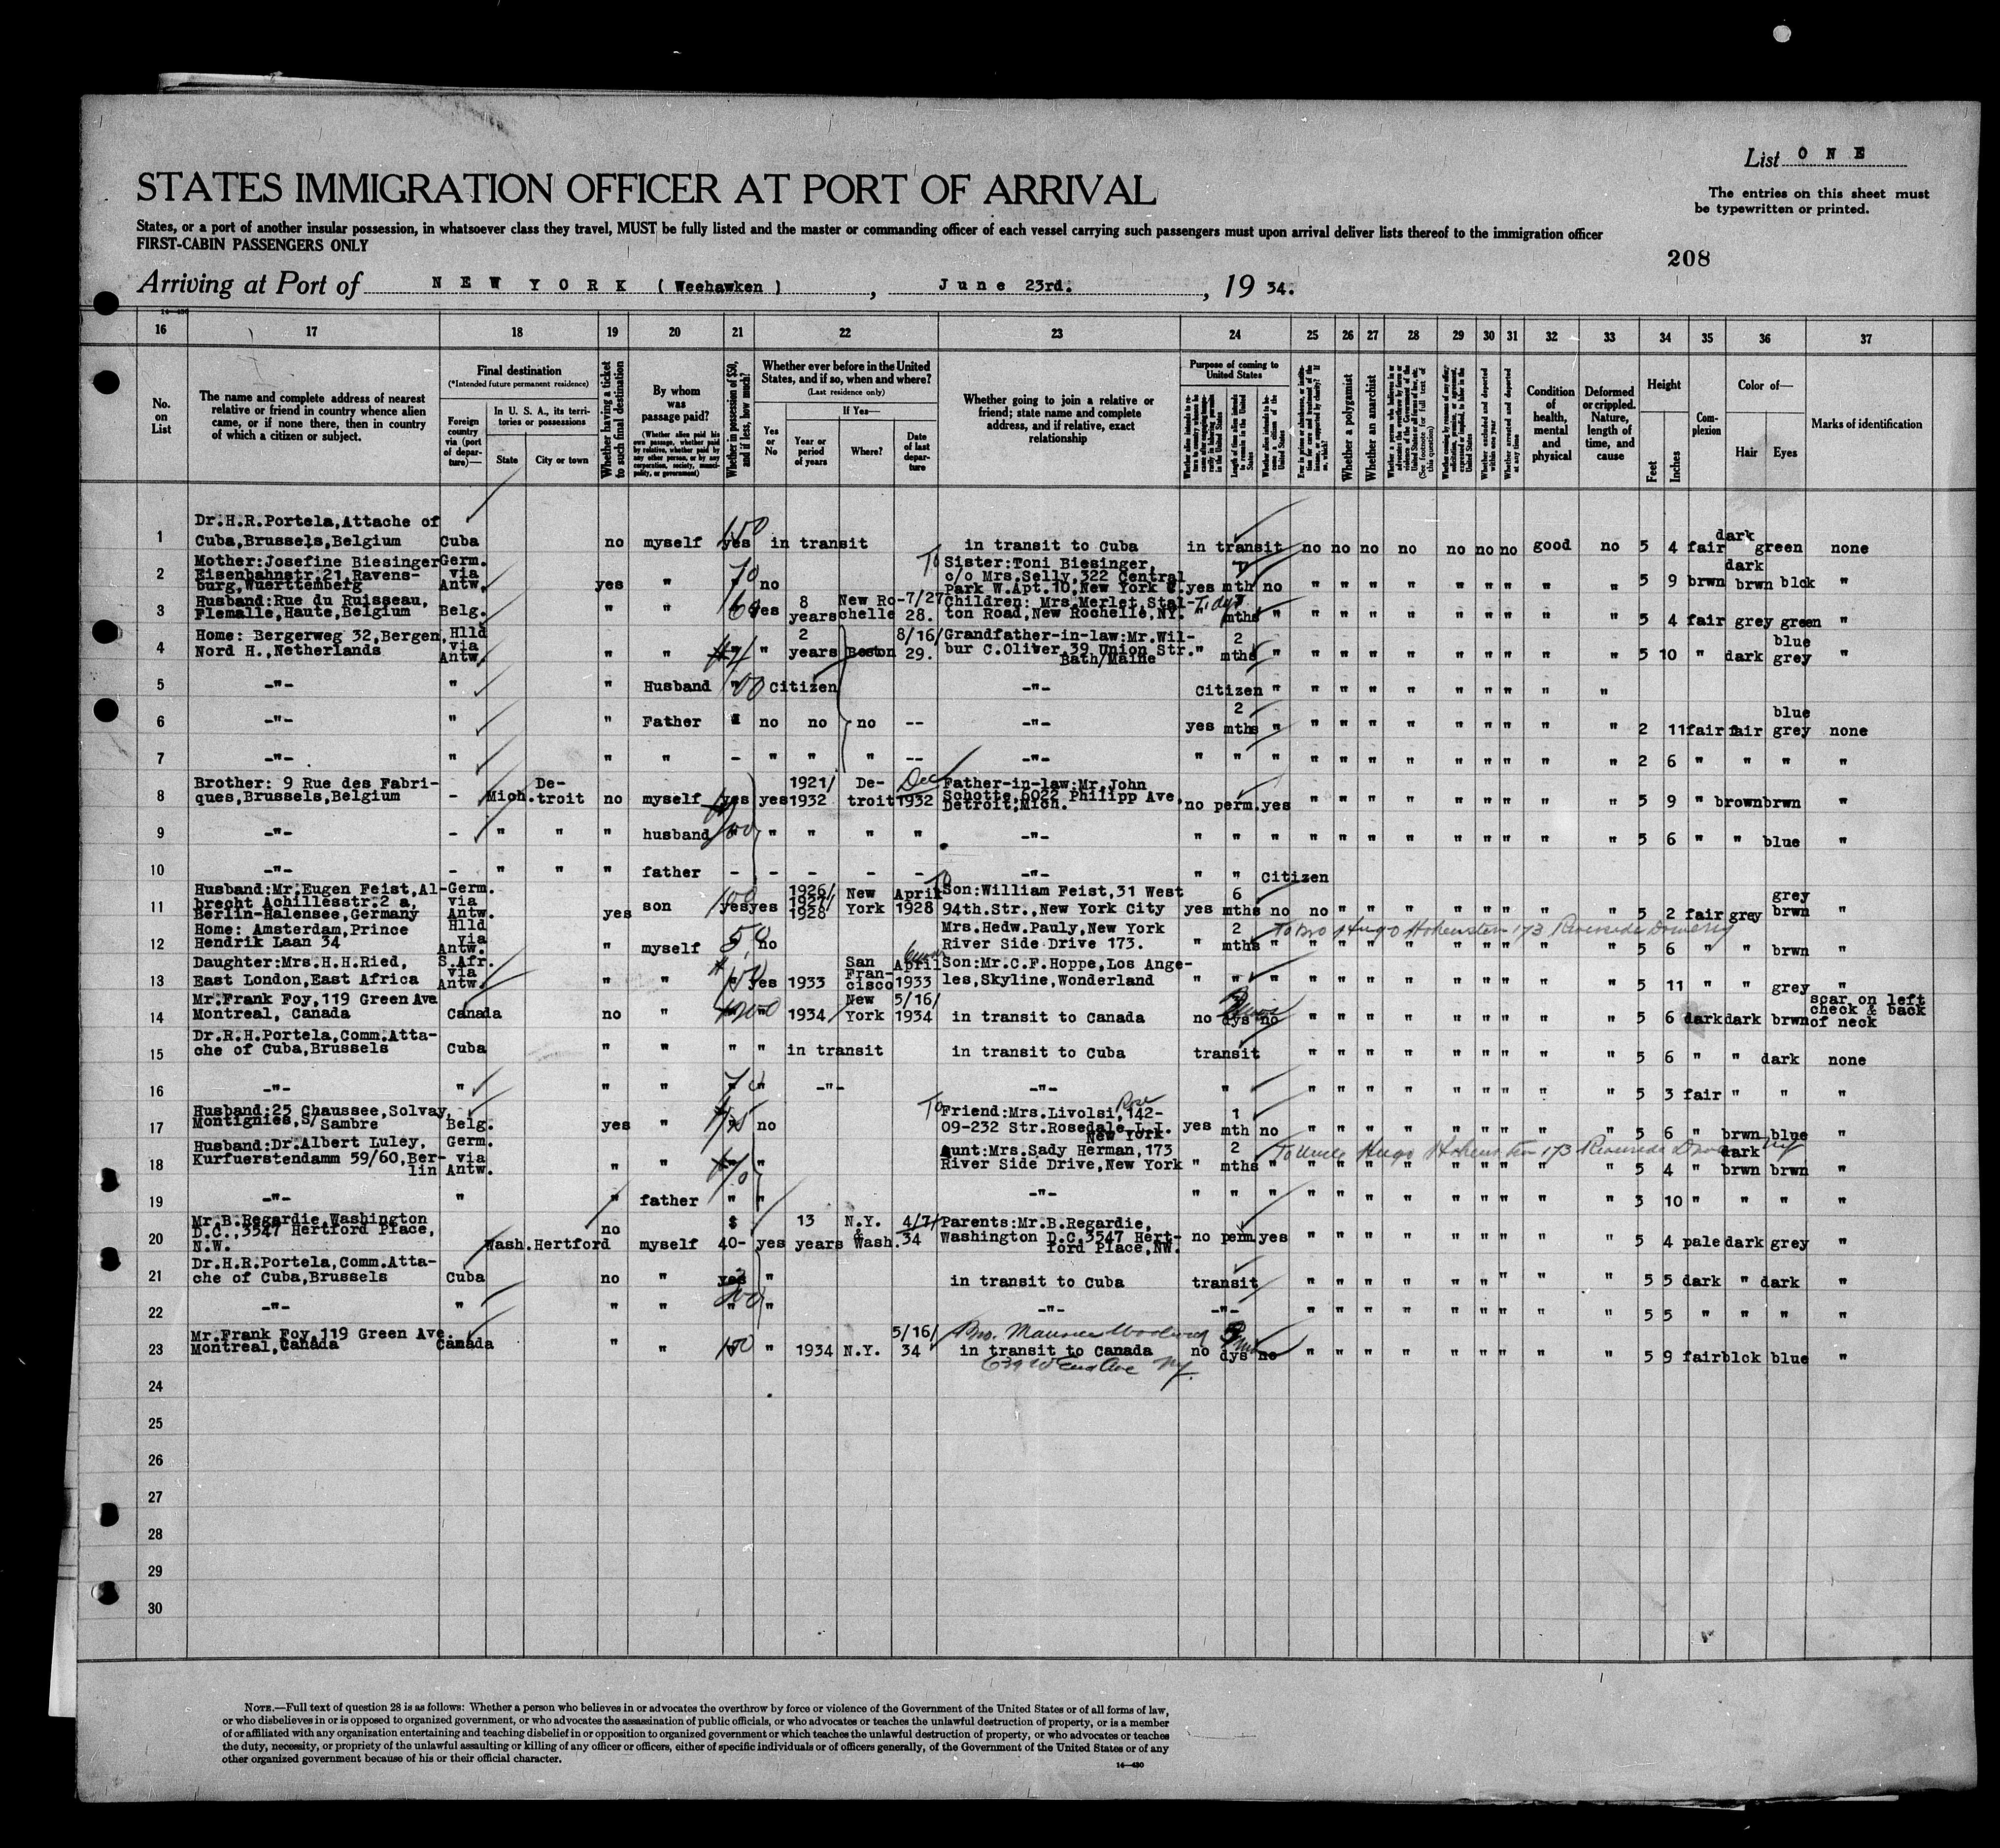 List O N E
STATES IMMIGRATION OFFICER AT PORT OF ARRIVAL
The entries on this sheet must
be typewritten or printed.
States, or a port of another insular possession, in whatsoever class they travel, MUST be fully listed and the master or commanding officer of each vessel carrying such passengers must upon arrival deliver lists thereof to the immigration officer
FIRST-CABIN PASSENGERS ONLY
208
Arriving at Port of N E W Y O R K ( Weehawken ) , June 23rd. , 19 34.
14-430
16 17 18 19 20 21 22 23 24 25 26 27 28 29 30 31 32 33 34 35 36 37
No. on List
The name and complete address of nearest relative or friend in country whence alien came, or if none there, then in country of which a citizen or subject.
Final destination
(*Intended future permanent residence)
Foreign country via (port of departure)—
In U. S. A., its territories or possessions
State
City or town
Whether having a ticket to such final destination
By whom was passage paid?
(Whether alien paid his own passage, whether paid by relative, whether paid by any other person, or by any corporation, society, municipality, or government)
Whether in possession of $50, and if less, how much?
Whether ever before in the United States, and if so, when and where?
(Last residence only)
Yes or No
If Yes—
Year or period of years
Where?
Date of last departure
Whether going to join a relative or friend; state name and complete address, and if relative, exact relationship
Purpose of coming to United States
Length of time alien intends to remain in the United States
Whether alien intends to become a citizen of the United States
Whether a polygamist
Whether an anarchist
Whether excluded and deported within one year
Whether arrested and deported at any time
Condition of health, mental and physical
Deformed or crippled. Nature, length of time, and cause
Height
Feet
Inches
Complexion
Color of—
Hair
Eyes
Marks of identification
1 Dr.H.R.Portela,Attache of
Cuba,Brussels,Belgium Cuba no myself yes 150 in transit in transit to Cuba in transit no no no no no no no good no 5 4 fair dark green none
2 Mother:Josefine Biesinger Germ. To Sister:Toni Biesinger,
Eisenbahnstr.21,Ravens- via c/o Mrs.Selly,322 Central
burg,Wuerttemberg Antw. yes " 70 no Park W.Apt.10,New York C. yes mth no " " " " " " " " " 5 9 brwn dark brwn blck "
3 Husband:Rue du Ruisseau, 8 New Ro- 7/27 Children: Mrs.Merlet,Stal-
Flemalle,Haute,Belgium Belg. " " 160 yes years chelle 28. ton Road,New Rochelle,NY. mths " " " " " " " " " " 5 4 fair grey green "
4 Home: Bergerweg 32,Bergen, Hlld 2 8/16/ Grandfather-in-law:Mr.Wil- 2 blue
Nord H.,Netherlands via Antw. " " " " years Boston 29. bur C.Oliver,39 Union Str. " mths " " " " " " " " " " 5 10 " dark grey "
Bath/Maine
5 -"- " " Husband " 100 citizen -"- citizen " " " " " " " " " "
6 -"- " " Father " no no no -- -"- yes 2 mths " " " " " " " " " " 2 11 fair fair blue grey none
7 -"- " " " - " " " -- -"- " " " " " " " " " " " " 2 6 " " " "
8 Brother: 9 Rue des Fabri- De- 1921/ De- Dec Father-in-law:Mr.John
ques,Brussels,Belgium - Mich. troit no myself yes yes 1932 troit 1932 Schotte,6022 Philipp Ave,
Detroit,Mich. no perm. yes " " " " " " " " " 5 9 " brown brwn "
9 -"- - " " " husband " " " " " -"- " " " " " " " " " " " " 5 6 " " blue "
10 -"- - " " " father - - - - - -"- " " Citizen
11 Husband:Mr.Eugen Feist,Al- Germ. 1926/ New April To Son:William Feist,31 West 6 grey
brecht Achillesstr.2 a, via 1927/
Berlin-Halensee,Germany Antw. yes son yes yes 1928 York 1928 94th.Str.,New York City yes mths no no " " " " " " " " 5 2 fair grey brwn "
12 Home: Amsterdam,Prince Hlld Mrs.Hedw.Pauly,New York 2 To Bro Hugo Hohenstein 173 Riverside Drive
Hendrik Laan 34 via Antw. " myself 50 no River Side Drive 173. " mths " " " " " " " " " " 5 6 " " brwn "
13 Daughter:Mrs.H.H.Ried, S.Afr. San April Son:Mr.C.F.Hoppe,Los Ange-
East London,East Africa via Antw. " " yes 1933 Francisco 1933 les,Skyline,Wonderland " " " " " " " " " " " " 5 11 " " grey "
14 Mr.Frank Foy,119 Green Ave New 5/16/ scar on left
Montreal, Canada Canada no " " 1934 York 1934 in transit to Canada no dys no " " " " " " " " " 5 6 dark dark brwn check & back
of neck
15 Dr.R.H.Portela,Comm.Atta-
che of Cuba,Brussels Cuba " " " " in transit in transit to Cuba transit " " " " " " " " " 5 6 " " dark none
16 -"- " " " " " -"- -"- " " " " " " " " " " 5 3 fair " " "
17 Husband:25 Chaussee,Solvay, To Friend:Mrs.Livolsi,142- Rose 1
Montignies,S/Sambre Belg. yes " " no 09-232 Str.Rosedale L.I. yes mth no " " " " " " " " " 5 6 " brwn blue "
New York
18 Husband:Dr.Albert Luley, Germ. Aunt:Mrs.Sady Herman,173 2 To Uncle Hugo Hohenstein 173 Riverside Drive NY
Kurfuerstendamm 59/60,Ber- via " " " " River Side Drive,New York " mths " " " " " " " " " " 5 4 " dark brwn brwn "
lin Antw.
19 -"- " " father " " -"- " " " " " " " " " " " " 5 10 " " " "
20 Mr.B.Regardie,Washington $ 13 N.Y. 4/7/ Parents:Mr.B.Regardie,
D.C.,3547 Hertford Place, no &
N.W. Wash. Hertford myself 40- yes years Wash. 34 Washington D.C.3547 Hert-
ford Place,NW. no perm yes " " " " " " " " " 5 4 pale dark grey "
21 Dr.H.R.Portela,Comm.Atta-
che of Cuba,Brussels Cuba no " yes " in transit to Cuba transit " " " " " " " " " 5 5 dark " dark "
22 -"- " " " 200 " -"- -"- " " " " " " " " " 5 5 " " " "
23 Mr.Frank Foy,119 Green Ave. 5/16/ Bro. Maurice
Montreal,Canada Canada " " 150 " 1934 N.Y. 34 in transit to Canada no dys no " " " " " " " " " 5 9 fair blck blue "
639 W End Ave NY.
24
25
26
27
28
29
30
NOTE.—Full text of question 28 is as follows: Whether a person who believes in or advocates the overthrow by force or violence of the Government of the United States or of all forms of law,
or who disbelieves in or is opposed to organized government, or who advocates the assassination of public officials, or who advocates or teaches the unlawful destruction of property, or is a member
of or affiliated with any organization entertaining and teaching disbelief in or opposition to organized government or which teaches the unlawful destruction of property, or who advocates or teaches
the duty, necessity, or propriety of the unlawful assaulting or killing of any officer or officers, either of specific individuals or of officers generally, of the Government of the United States or of any
other organized government because of his or their official character.
14—430